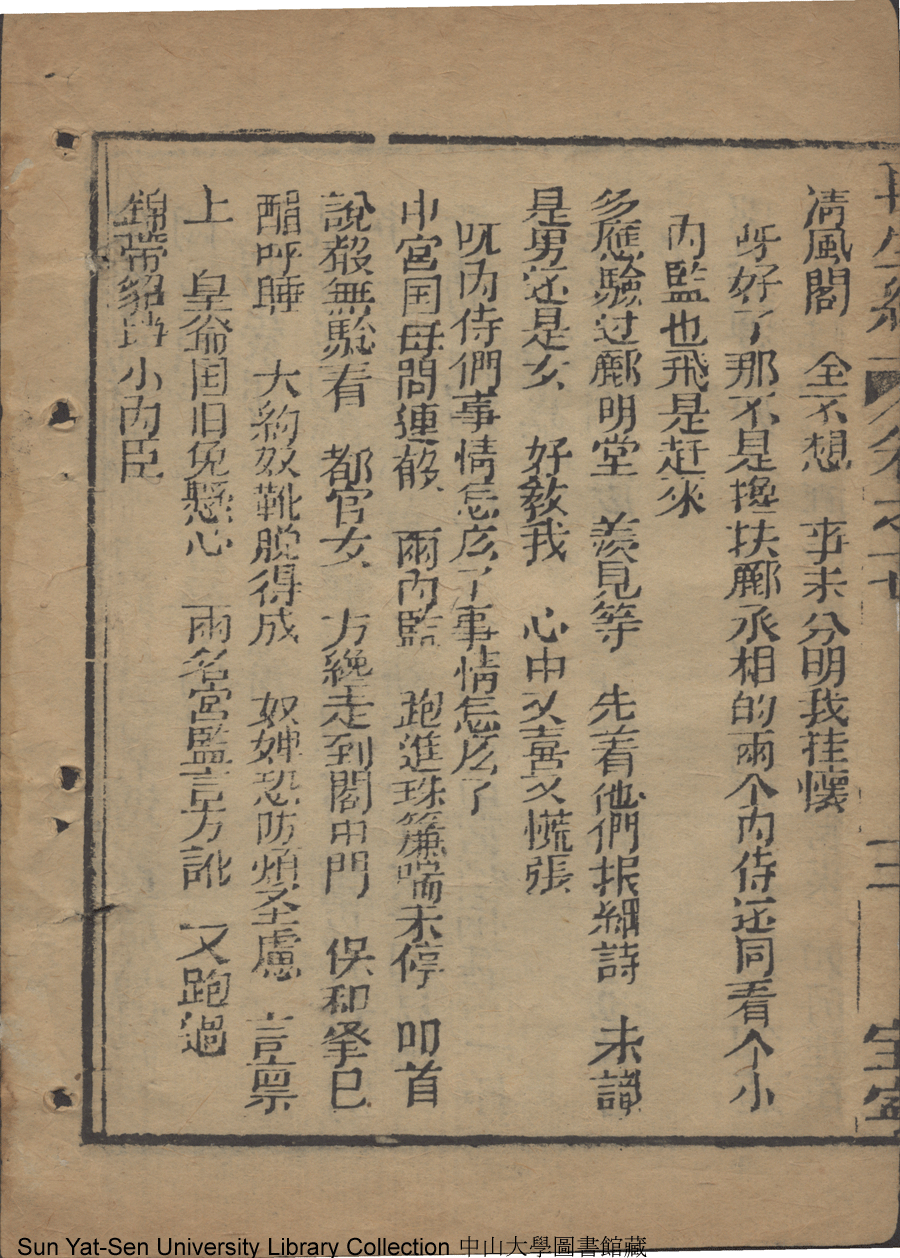 清風閣　全不想　事未分明我挂懷
呀好了那不是攙扶酈丞相的兩个內侍还同着个小
內監也飛是赶來
多應驗过酈明堂　羨見等　先着他們报細詩　未諳
是男还是女　好敎我　心中又喜又慌張
呒內侍們事情怎庅了事情怎庅了
中宮囯母問連　兩內監　跑進珠簾喘未停　叩首
說　無騐看　都官女　方纔走到閣中門　保和　已
酣呼睡　大約奴靴脱得成　奴婢恐防煩圣慮　言禀
上　皇　囯旧免懸心　兩名宮監言方訛　又跑過
錦帶貂璫小內臣
再生縁　卷之十　三　宝寧
Sun Yat-Sen University Library Collection 中山大學圖書館藏